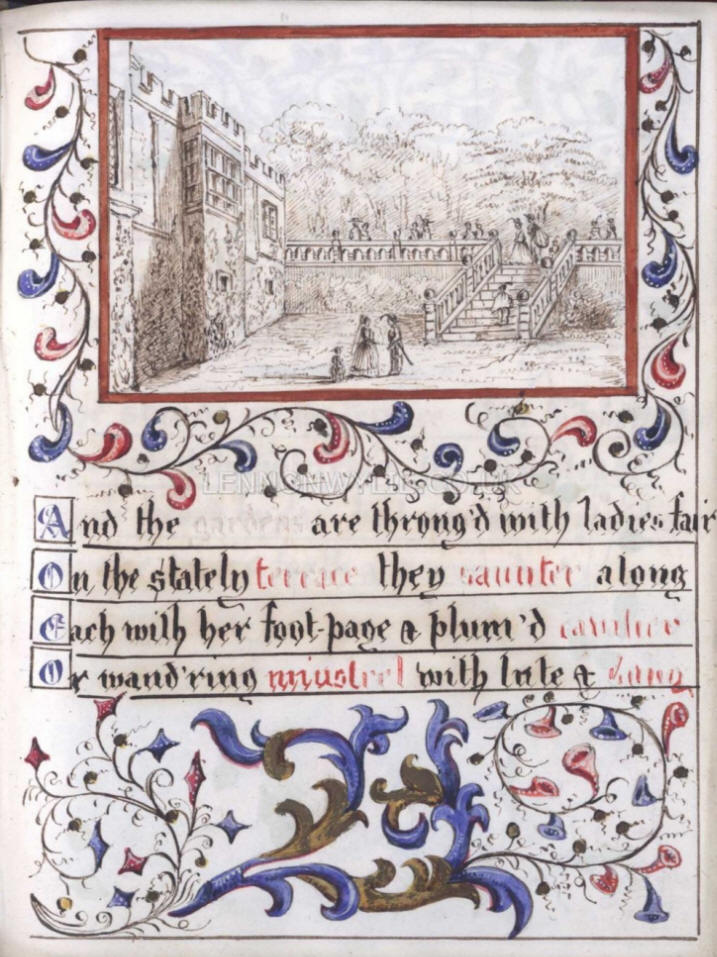 LENNONWYLIE.CO.UK
And the gardens are throng'd with ladies fair
On the stately terrace they saunter along
Each with her foot-page & plum'd cavalier
Or wand'ring minstrel with lute & song